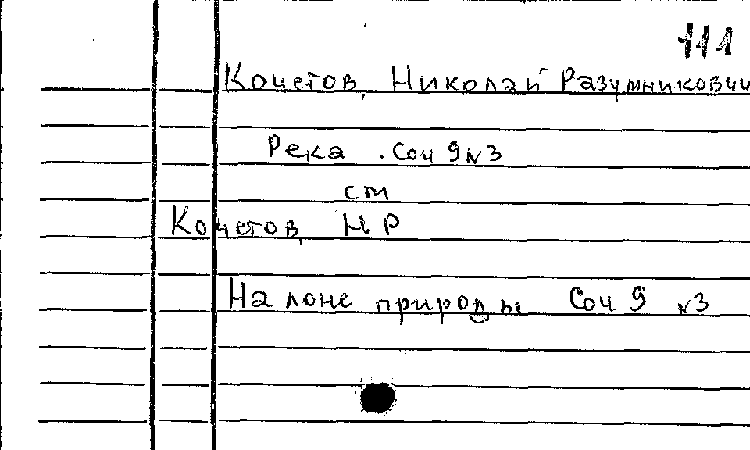 111
Кочетов, Николай Разумникович
Река . Соч 9 N 3
см
Кочетов, Н Р
На лоне природы Соч 9 N 3